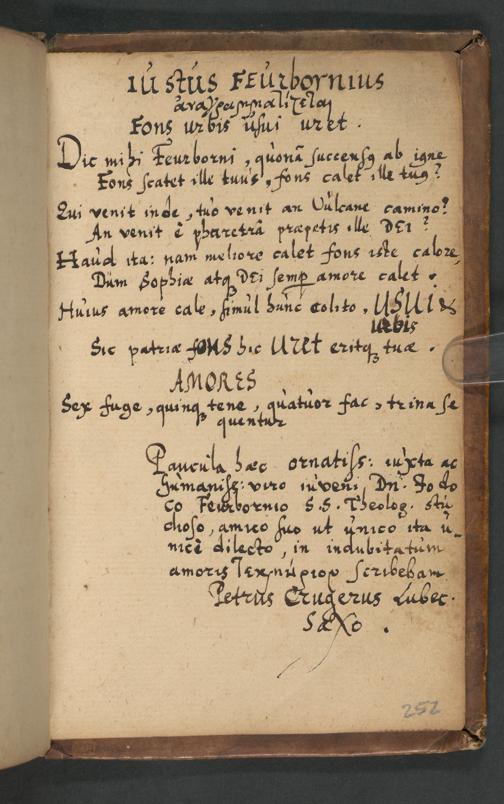 IUSTUS FEURBORNIUS
ἀναγραμματίζεται
Fons urbis usui uret.
Dic mihi Feurborni, quonã succensq ab igne
Fons scatet ille tuus, fons calet ille tuq?
Qui venit inde, tuo venit an Vulcane camino?
An venit è pharetrâ præpetis ille DEI?
Haud ita: nam meliore calet fons iste calore,
Dum Sophiæ atq DEI semp amore calet.
Huius amore cale, simul hunc colito, USUI &
urbis
Sic patriæ fONS hic URET eritq tuæ.
AMORES
Sex fuge, quinq tene, quatuor fac, trina se
quentur
Paucula hæc ornatiss: iuxta ac
humaniss: viro iuveni Dn. Jodo
co Feurbornio S.S. Theolog. stu
dioso, amico suo ut unico ita u-
nicè dilecto, in indubitatum
amoris τεκμήριον scribebam
Petrus Crugerus Lubec.
Saxo.
252